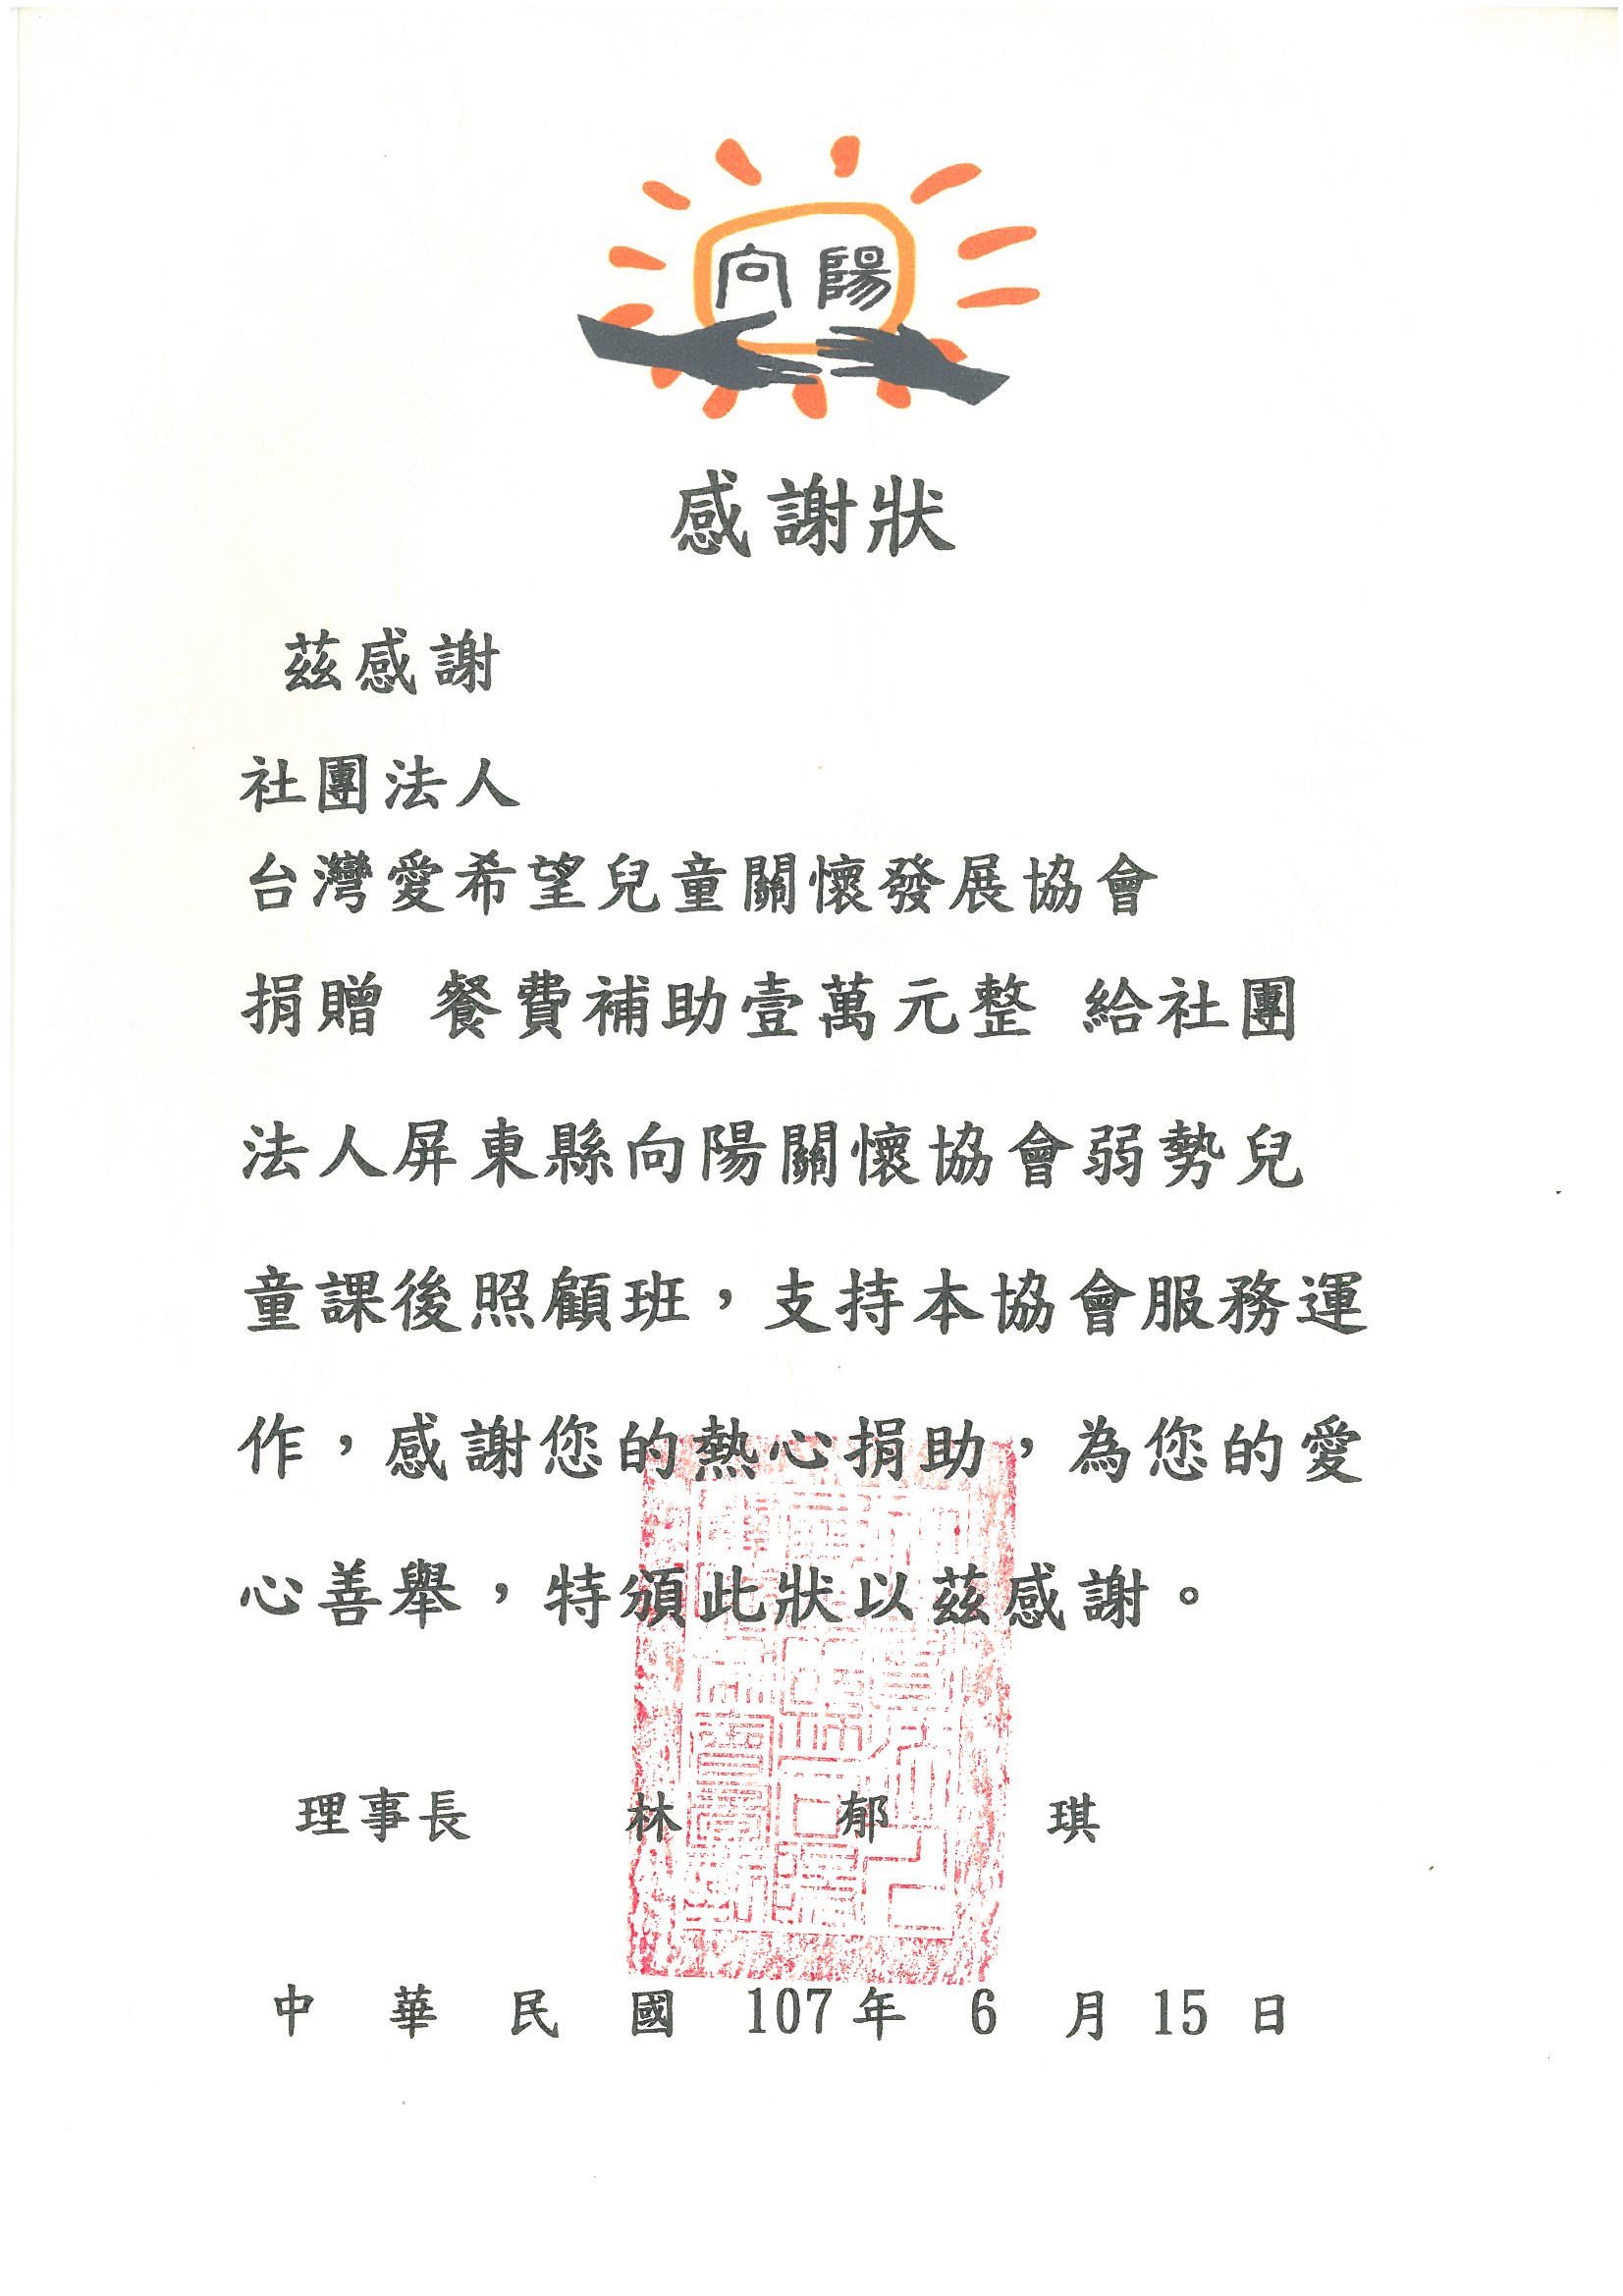 向陽
感謝狀
茲感謝
社團法人
台灣愛希望兒童關懷發展協會
捐贈 餐費補助壹萬元整 給社團
法人屏東縣向陽關懷協會弱勢兒
童課後照顧班，支持本協會服務運
作，感謝您的熱心捐助，為您的愛
心善舉，特頒此狀以茲感謝。
理事長 林 郁 琪
中 華 民 國 107 年 6 月 15 日